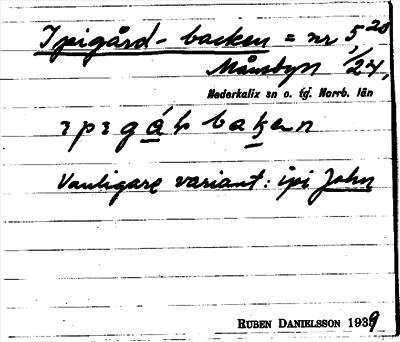 Ipigård-backen = nr 5,20
Månsbyn 1/24,
Nederkalix sn o. tg. Norrb. län
Vanligare variant: ipi John
RUBEN DANIELSSON 1939